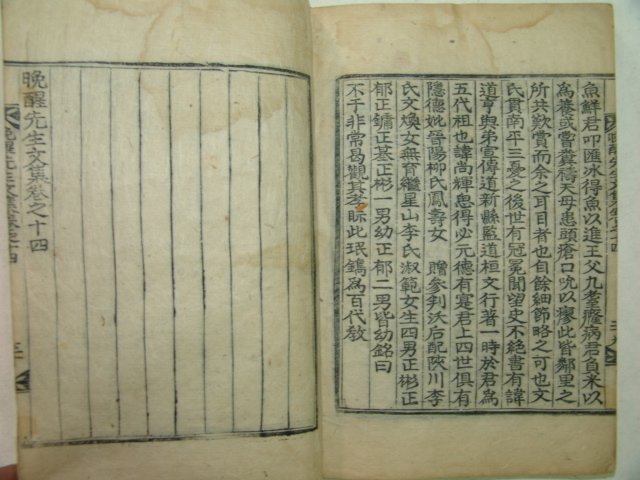 魚鮮君叩匯冰得魚以進王父九耋癃病君負米以
為養或嘗糞禱天母患頭瘡口吮以瘳此皆鄰里之
所共歎賞而余之耳目者也自餘細節略之可也文
氏貫南平三憂之後世有冠冕聞望史不絕書有諱
道亨與弟宣傳道新縣監道桓文行著一時於君為
五代祖也諱尚輝患得必元德有寔君上四世俱有
隱德妣晉陽柳氏鳳壽女 贈參判沃后配陜川李
氏文煥女無育繼星山李氏淑範女生四男正彬正
郁正鏞正基正彬一男幼正郁二男皆幼銘曰
不于非常曷觀其孝眎此珉鐫為百代教
晩醒先生文集卷之十四